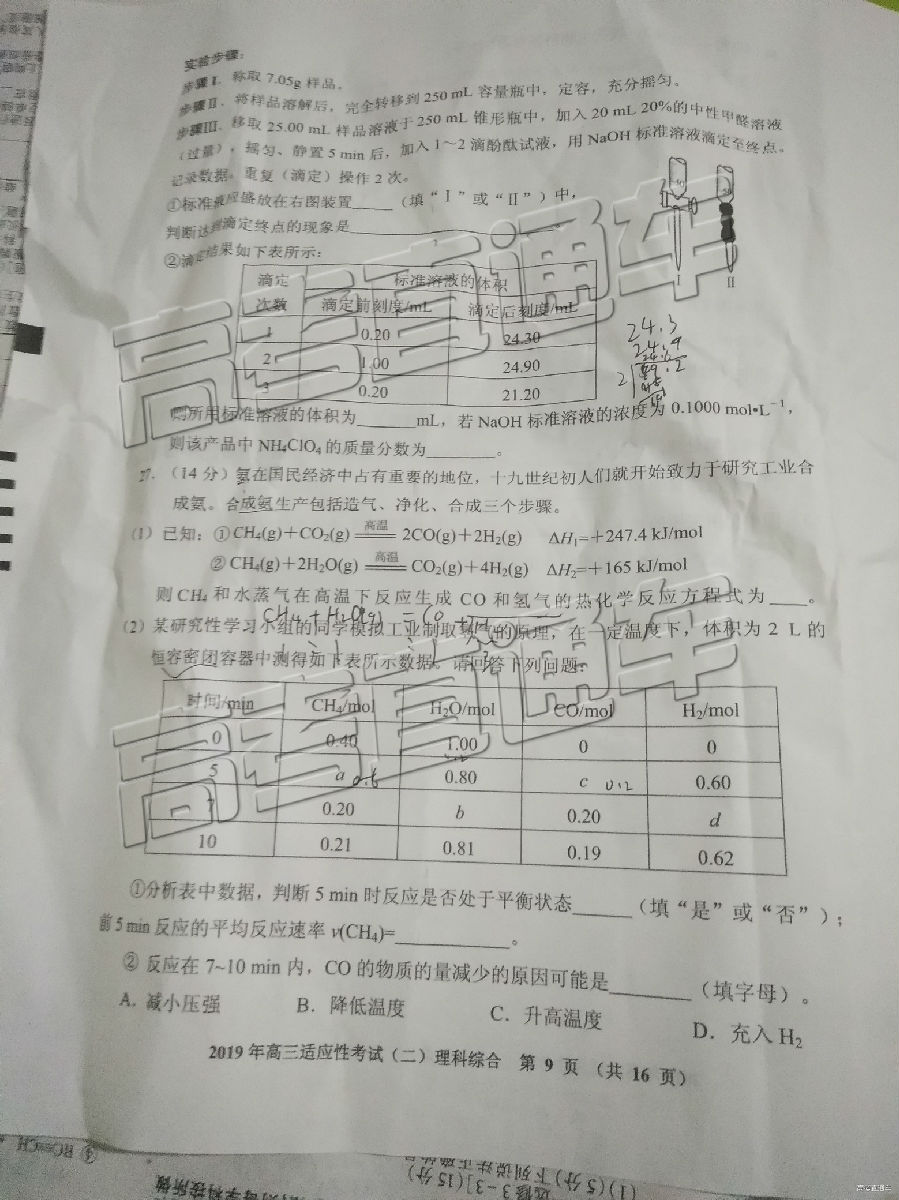 实验步骤：
步骤Ⅰ. 称取 7.05g 样品。
步骤Ⅱ. 将样品溶解后，完全转移到 250 mL 容量瓶中，定容，充分摇匀。
步骤Ⅲ. 移取 25.00 mL 样品溶液于 250 mL 锥形瓶中，加入 20 mL 20%的中性甲醛溶液
（过量），摇匀、静置 5 min 后，加入 1～2 滴酚酞试液，用 NaOH 标准溶液滴定至终点。
记录数据，重复（滴定）操作 2 次。
①标准液应盛放在右图装置_____（填“Ⅰ”或“Ⅱ”）中，
判断达到滴定终点的现象是____________________。
Ⅰ Ⅱ
②滴定结果如下表所示：
滴定次数 标准溶液的体积
滴定前刻度/mL 滴定后刻度/mL
1 0.20 24.30
2 1.00 24.90
3 0.20 21.20
24.3
则所用标准溶液的体积为______mL，若 NaOH 标准溶液的浓度为 0.1000 mol•L⁻¹，
则该产品中 NH₄ClO₄ 的质量分数为________。
27.（14 分）氨在国民经济中占有重要的地位，十九世纪初人们就开始致力于研究工业合
成氨。合成氨生产包括造气、净化、合成三个步骤。
(1) 已知：①CH₄(g)＋CO₂(g) 高温 2CO(g)＋2H₂(g) ΔH₁=＋247.4 kJ/mol
②CH₄(g)＋2H₂O(g) 高温 CO₂(g)＋4H₂(g) ΔH₂=＋165 kJ/mol
则 CH₄ 和水蒸气在高温下反应生成 CO 和氢气的热化学反应方程式为____。
CH₄ + H₂O(g) = CO + H₂
(2) 某研究性学习小组的同学模拟工业制取氢气的原理，在一定温度下，体积为 2 L 的
恒容密闭容器中测得如下表所示数据。请回答下列问题：
时间/min CH₄/mol H₂O/mol CO/mol H₂/mol
0 0.40 1.00 0 0
5 a 0.80 c 0.2 0.60
7 0.20 b 0.20 d
10 0.21 0.81 0.19 0.62
①分析表中数据，判断 5 min 时反应是否处于平衡状态______（填“是”或“否”）；
前 5 min 反应的平均反应速率 v(CH₄)=___________。
② 反应在 7~10 min 内，CO 的物质的量减少的原因可能是________（填字母）。
A. 减小压强 B. 降低温度 C. 升高温度 D. 充入 H₂
2019 年高三适应性考试（二）理科综合 第 9 页 （共 16 页）
高考直通车
高考直通车